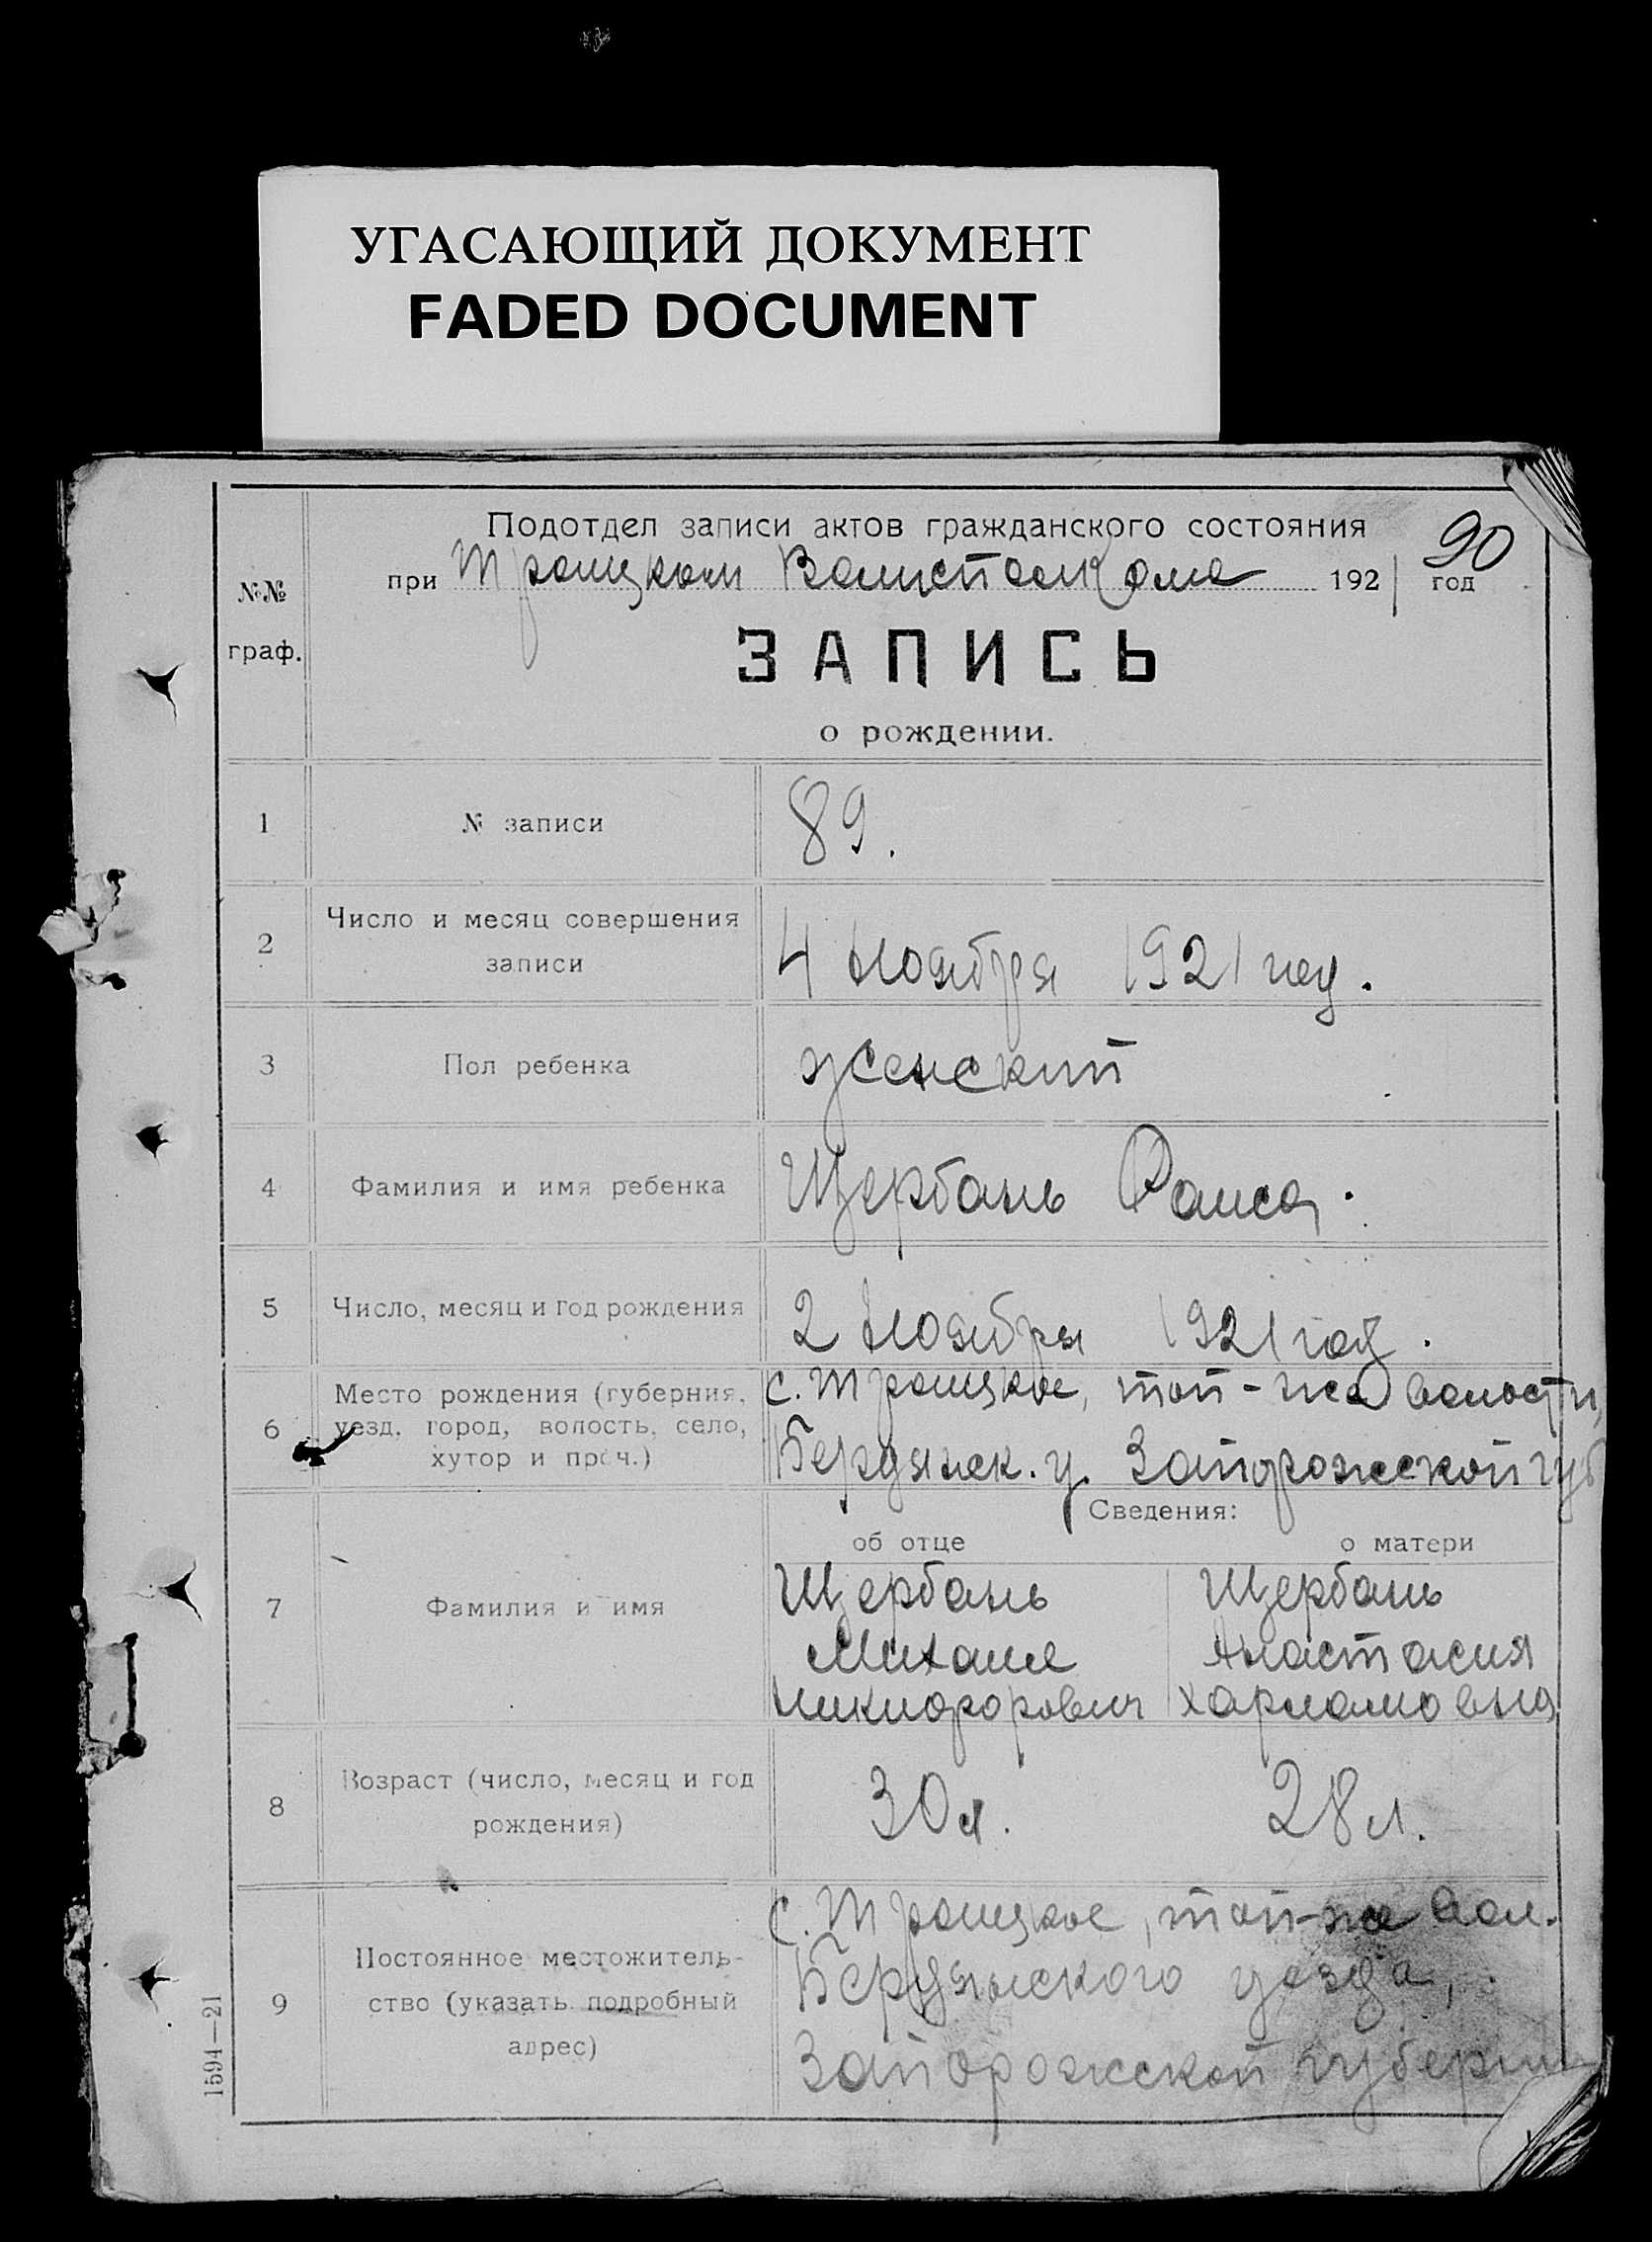 УГАСАЮЩИЙ ДОКУМЕНТ
FADED DOCUMENT
90
Подотдел записи актов гражданского состояния
при Троицком Волисполкома 1921 год
№№
граф.
ЗАПИСЬ
о рождении.
1 № записи 89.
2 Число и месяц совершения
записи
4 Ноября 1921 год.
3 Пол ребенка женский
4 Фамилия и имя ребенка Щербань Раиса.
5 Число, месяц и год рождения 2 Ноября 1921 год.
6 Место рождения (губерния,
уезд, город, волость, село,
хутор и проч.)
с. Троицкое, той-же волости,
Бердянск. у. Запорожской губ
Сведения:
об отце о матери
7 Фамилия и имя
Щербань Щербань
Михаил Анастасия
Никифорович Харламовна
8 Возраст (число, месяц и год
рождения)
30 л. 28 л.
9 Постоянное местожитель-
ство (указать подробный
адрес)
с. Троицкое, той-же вол.
Бердянского уезда,
Запорожской губерни
1594—21